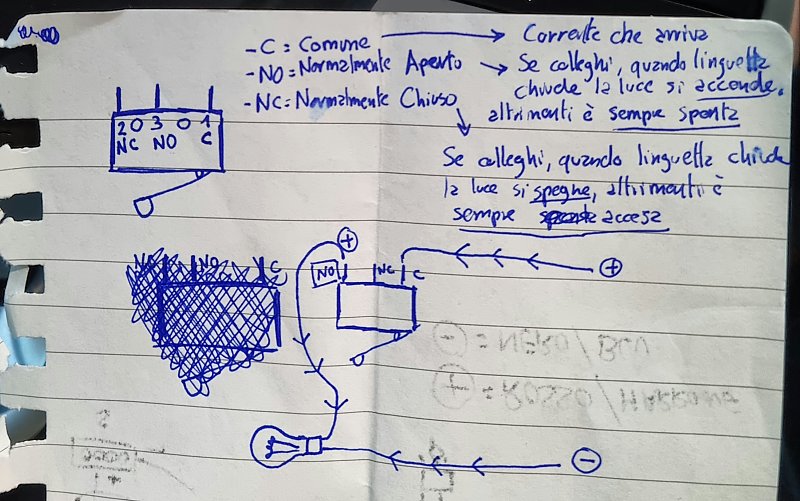 - C = Comune → Corrente che arriva
- NO = Normalmente Aperto → Se colleghi, quando linguetta
chiude la luce si accende,
altrimenti è sempre spenta
- NC = Normalmente Chiuso
Se colleghi, quando linguetta chiude
la luce si spegne, altrimenti è
sempre accesa
2 0 3 0 1
NC NO C
NO C
+
NO NC C +
- = NERO / BLU
+ = ROSSO / MARRONE
-